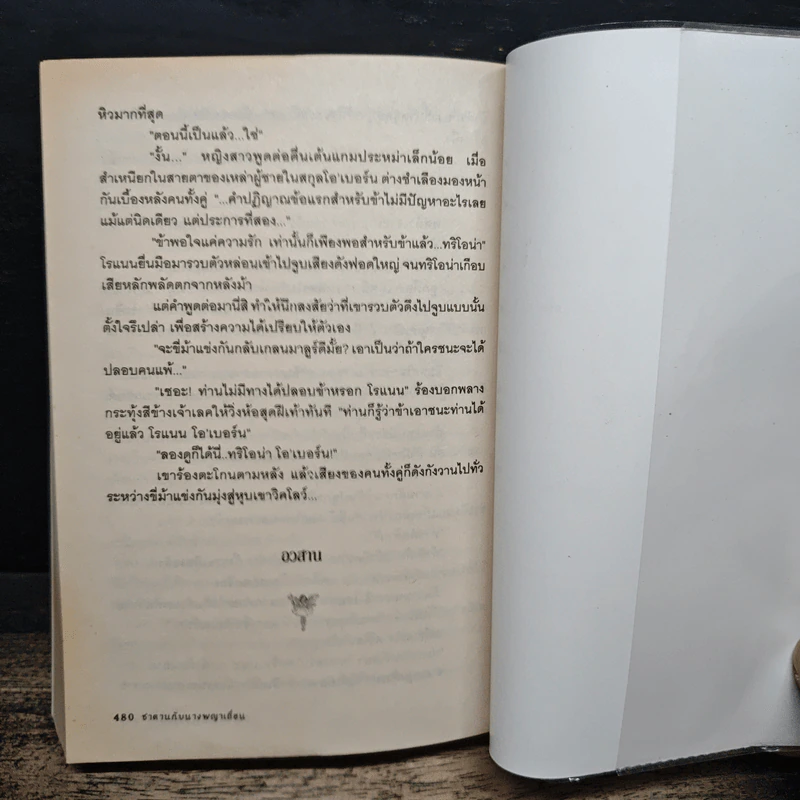 หิวมากที่สุด
"ตอนนี้เป็นแล้ว...ใช่"
"งั้น..." หญิงสาวพูดต่อตื่นเต้นแกมประหม่าเล็กน้อย เมื่อ
สำเหนียกในสายตาของเหล่าผู้ชายในสกุลโอ'เบอร์น ต่างชำเลืองมองหน้า
กันเบื้องหลังคนทั้งคู่ "...คำปฏิญาณข้อแรกสำหรับข้าไม่มีปัญหาอะไรเลย
แม้แต่นิดเดียว แต่ประการที่สอง..."
"ข้าพอใจแค่ความรัก เท่านั้นก็เพียงพอสำหรับข้าแล้ว...ทริโอน่า"
โรแนนยื่นมือมารวบตัวหล่อนเข้าไปจูบเสียงดังฟอดใหญ่ จนทริโอน่าเกือบ
เสียหลักพลัดตกจากหลังม้า
แต่คำพูดต่อมานี่สิ ทำให้นึกสงสัยว่าที่เขารวบตัวดึงไปจูบแบบนั้น
ตั้งใจรึเปล่า เพื่อสร้างความได้เปรียบให้ตัวเอง
"จะขี่ม้าแข่งกันกลับเกลนมาลูร์ดีมั้ย? เอาเป็นว่าถ้าใครชนะจะได้
ปลอบคนแพ้..."
"เชอะ! ท่านไม่มีทางได้ปลอบข้าหรอก โรแนน" ร้องบอกพลาง
กระทุ้งสีข้างเจ้าเลคให้วิ่งห้อสุดฝีเท้าทันที "ท่านก็รู้ว่าข้าเอาชนะท่านได้
อยู่แล้ว โรแนน โอ'เบอร์น"
"ลองดูก็ได้นี่..ทริโอน่า โอ'เบอร์น!"
เขาร้องตะโกนตามหลัง แล้วเสียงของคนทั้งคู่ก็ดังกังวานไปทั่ว
ระหว่างขี่ม้าแข่งกันมุ่งสู่หุบเขาวิคโลว์...
อวสาน
480 ซาตานกับนางพญาเถื่อน